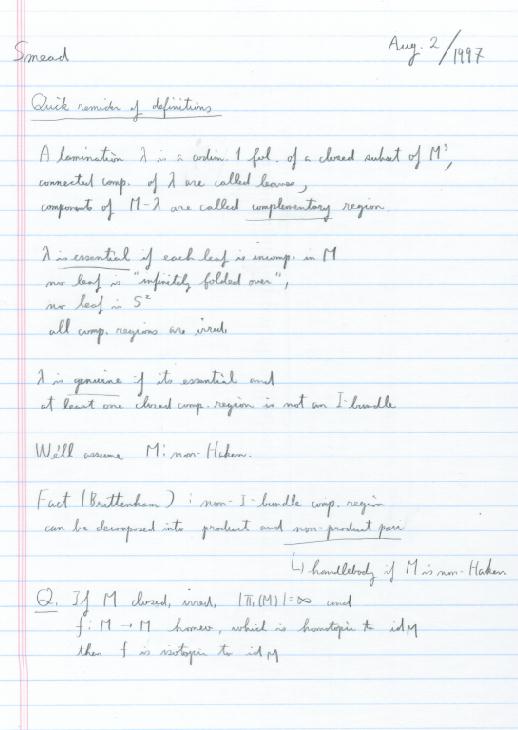 Smead
Aug. 2/1997
Quick remider of definitions
A lamination λ is a codim. 1 fol. of a closed subset of M³,
connected comp. of λ are called leaves,
components of M-λ are called complementary region.
λ is essential if each leaf is incomp. in M
no leaf is "infinitely folded over",
no leaf is S²
all comp. regions are irred.
λ is genuine if its essential and
at least one closed comp. region is not an I-bundle
We'll assume M: non-Haken.
Fact (Brittenham) : non-I-bundle comp. region
can be decomposed into product and non-product parts
↳ handlebody if M is non-Haken
Q. If M closed, irred, |π₁(M)|=∞ and
f: M → M homeo, which is homotopic to id_M
then f is isotopic to id_M